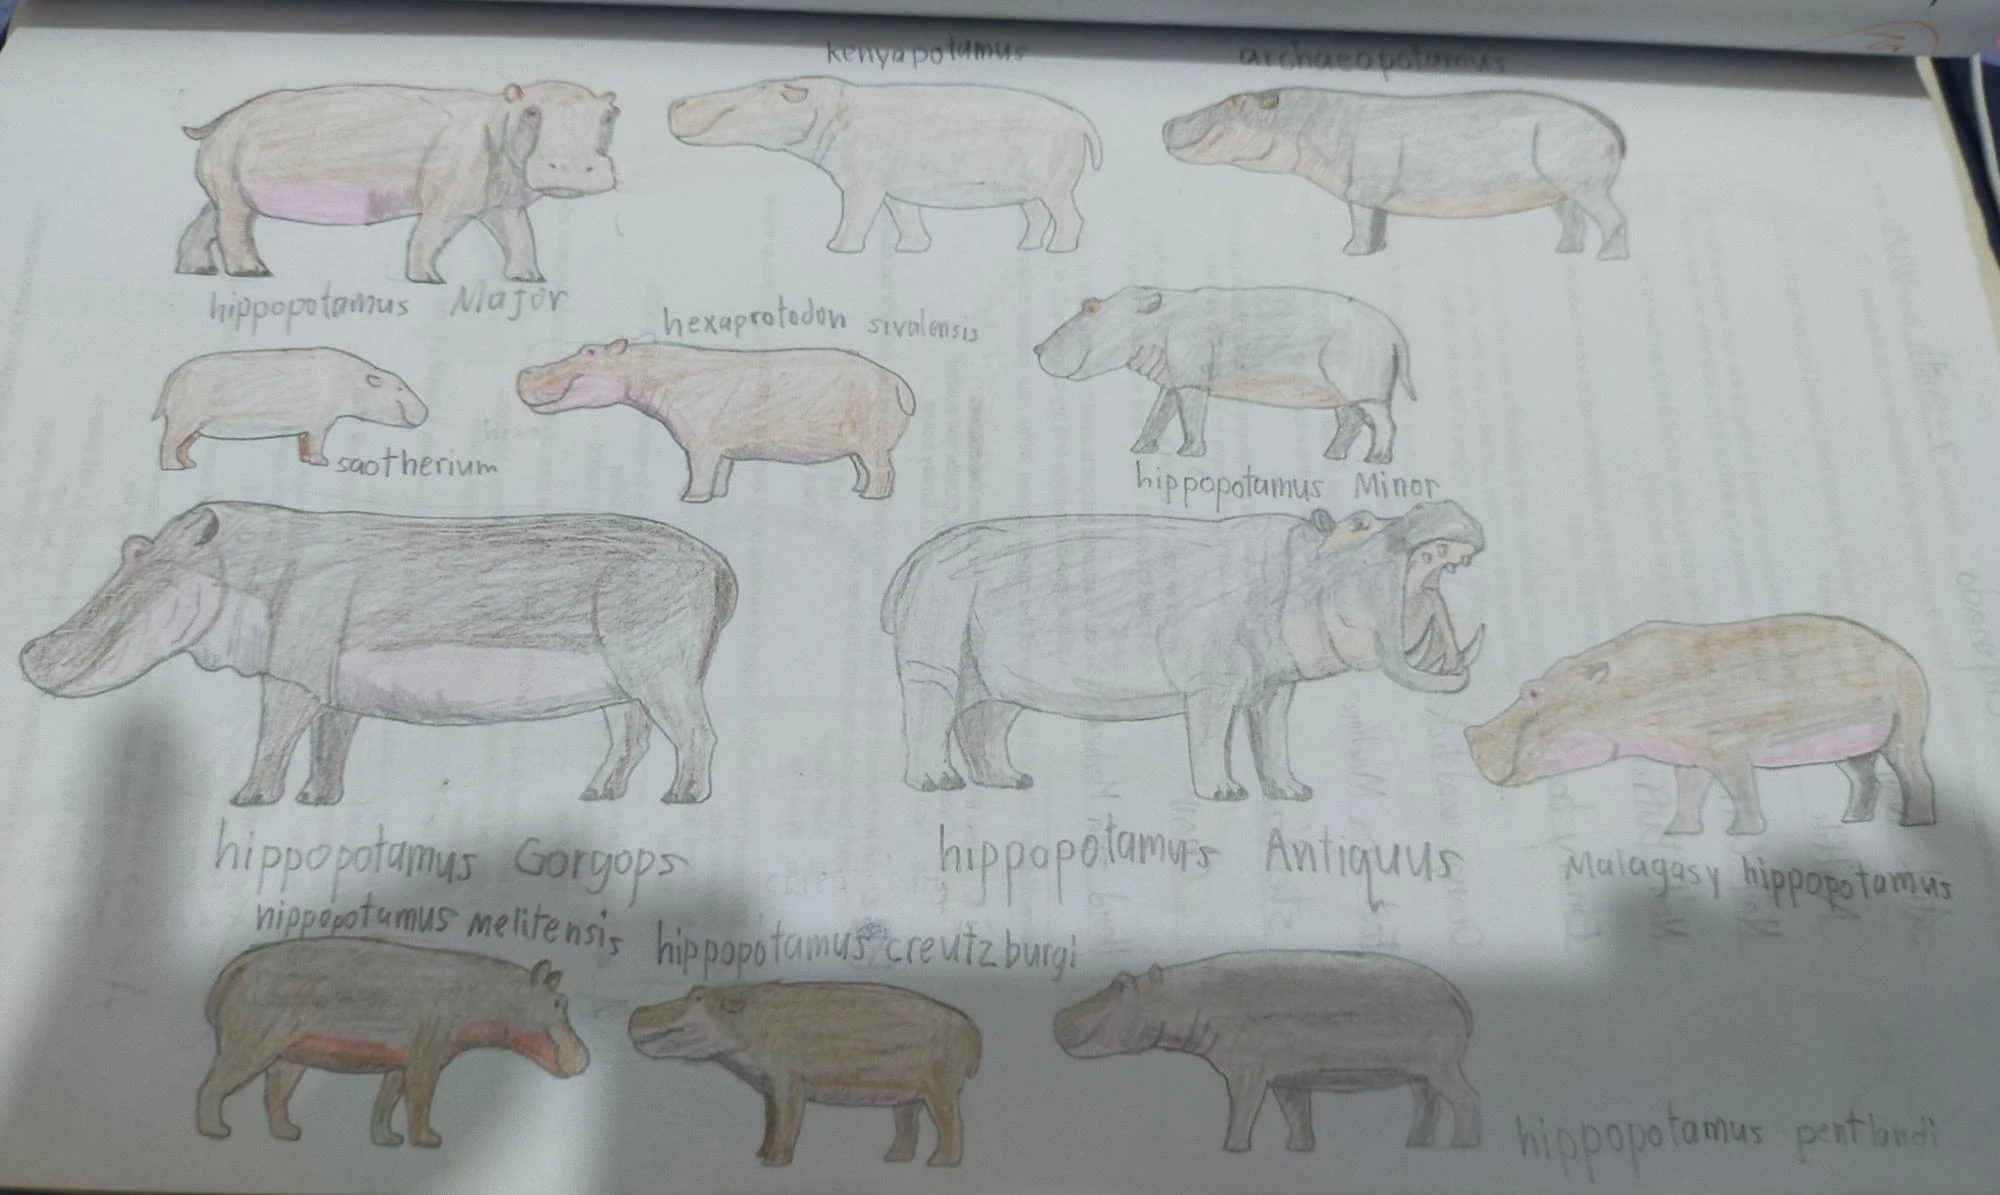 kenyapotamus
archaeopotamus
hippopotamus Major
hexaprotodon sivalensis
saotherium
hippopotamus Minor
hippopotamus Gorgops
hippopotamurs Antiquus
Malagasy hippopotamus
hippopotamus melitensis
hippopotamus creutzburgi
hippopotamus pentlandi